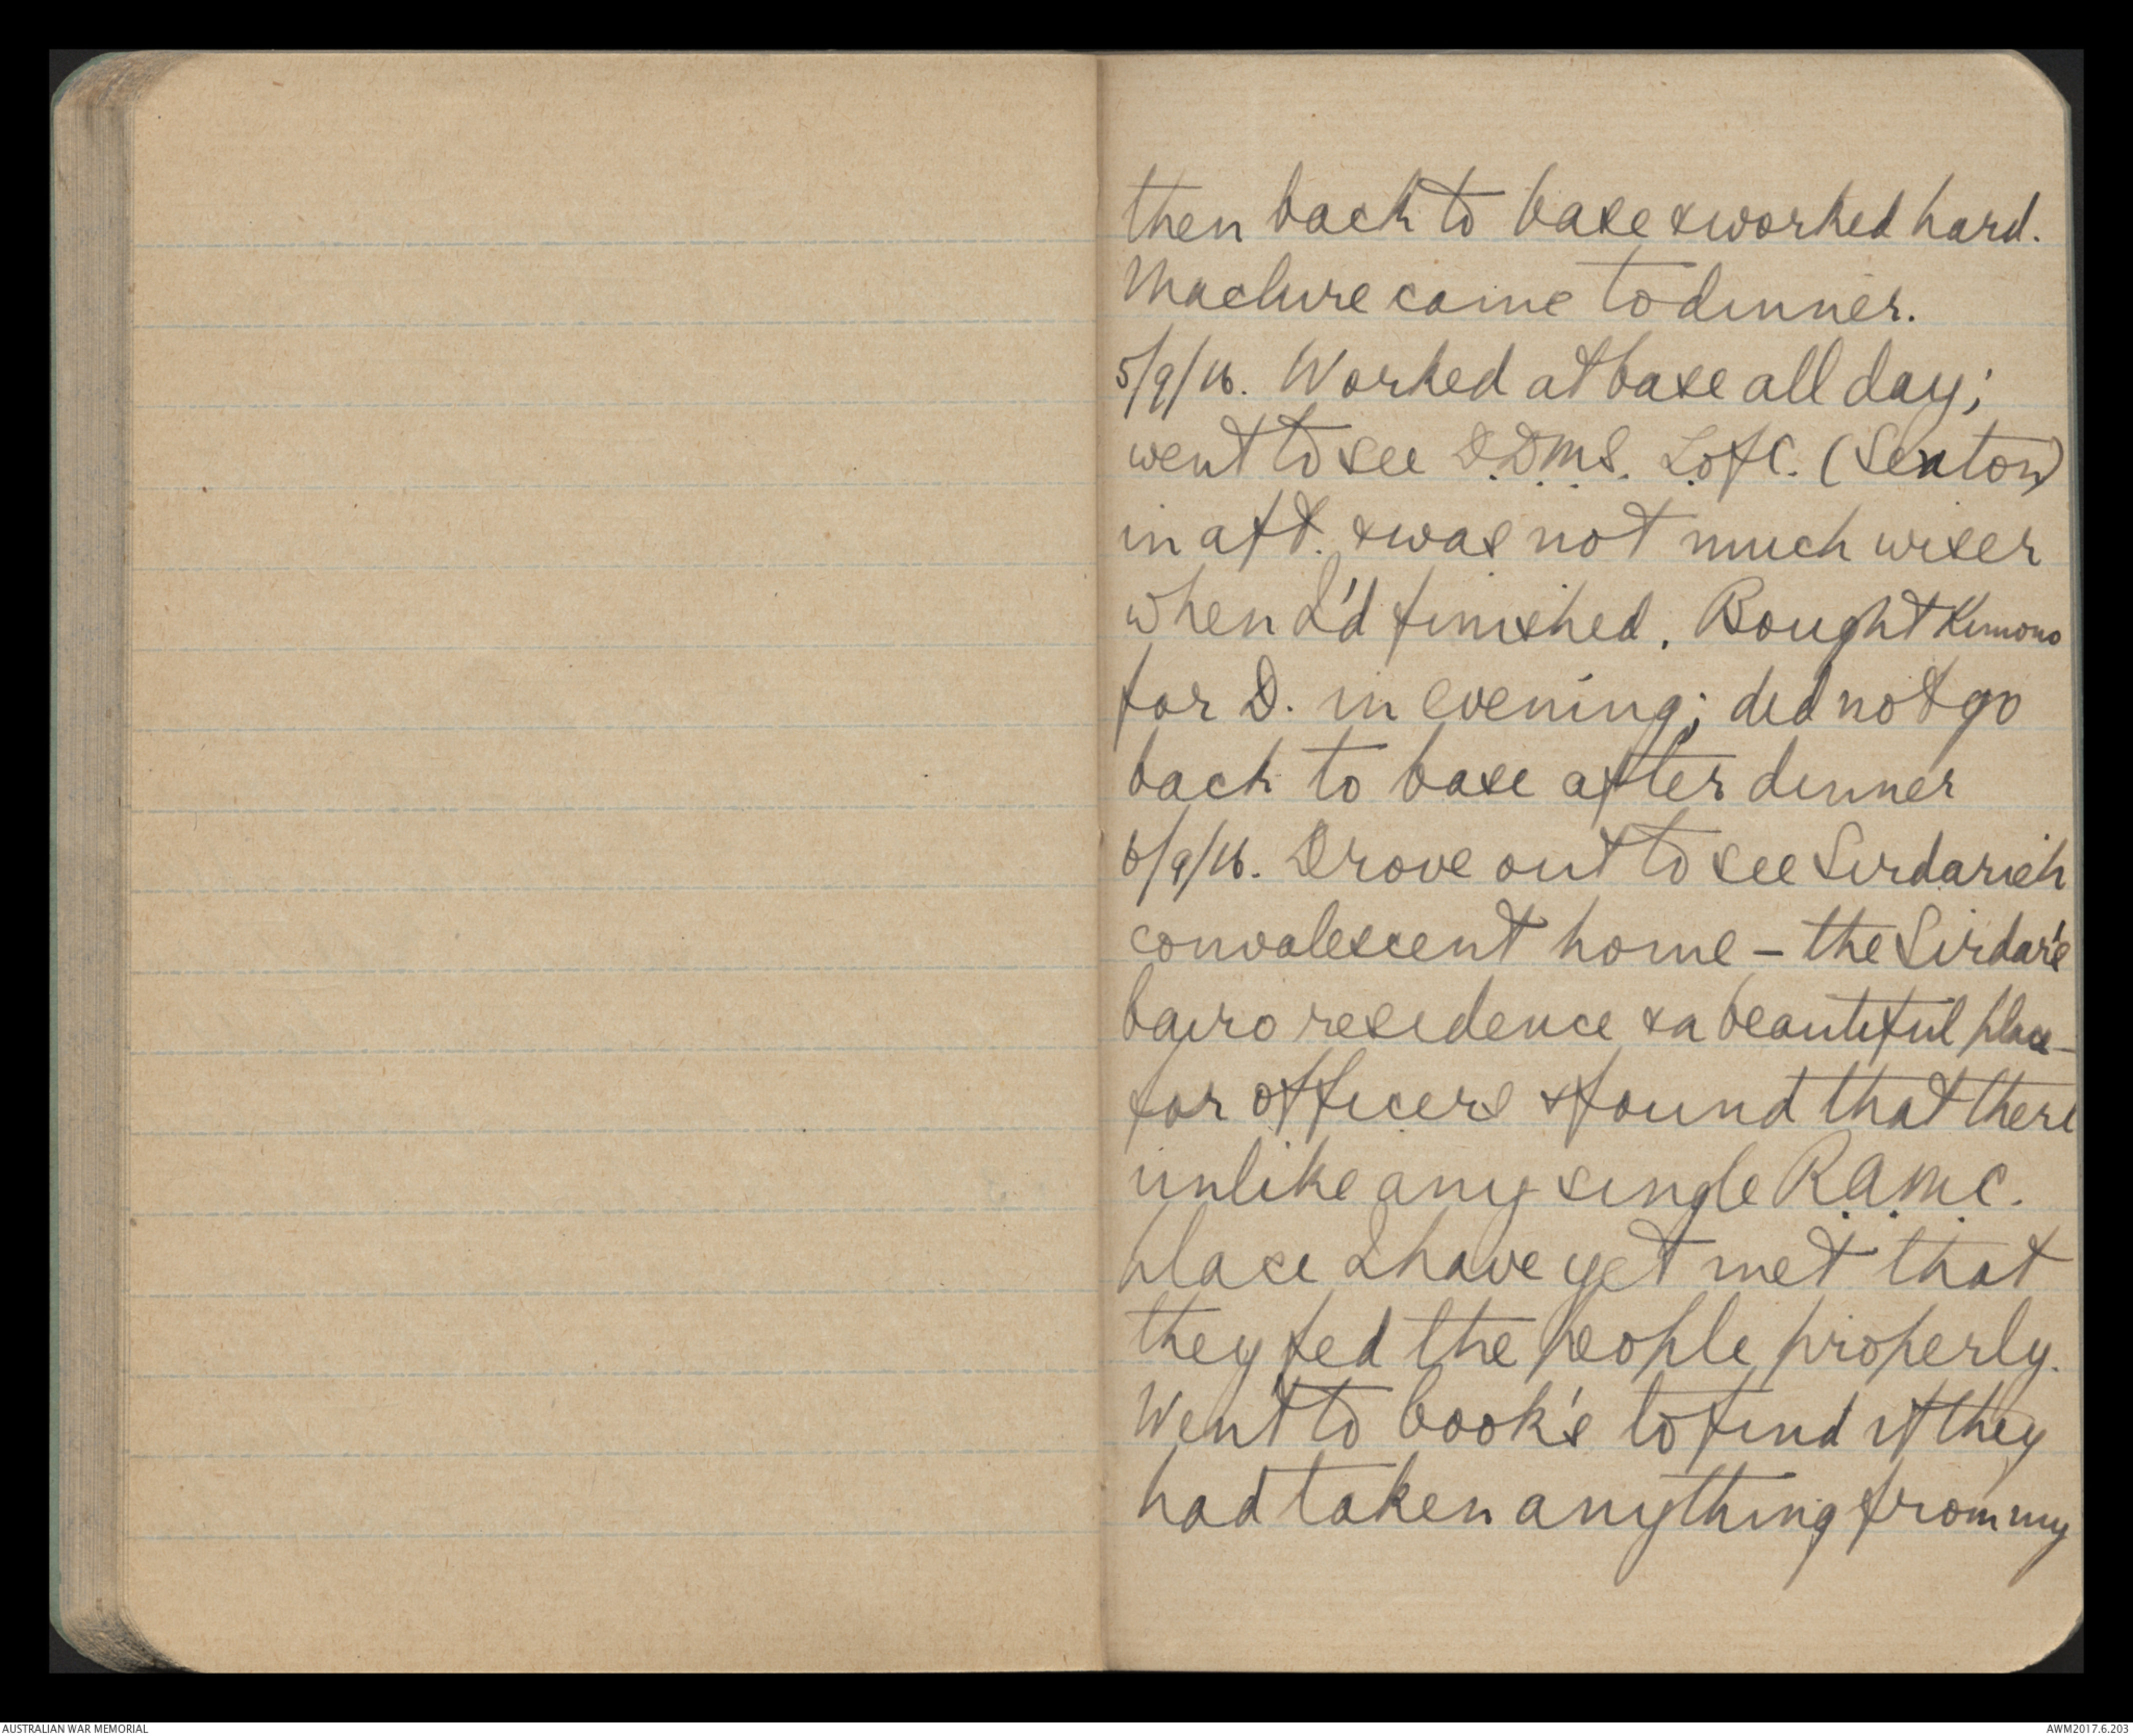 then back to base & worked hard.
Maclure came to dinner.
5/9/16. Worked at base all day;
went to see D.D.M.S. L of C. (Sexton)
in aft. & was not much wiser
when I'd finished. Bought Kimono
for D. in evening; did not go
back to base after dinner
6/9/16. Drove out to see Sirdarieh
convalescent home - the Sirdar's
Cairo residence & a beautiful place -
for officers & found that there
unlike any single R.A.M.C.
place I have yet met that
they fed the people properly.
Went to Cook's to find if they
had taken anything from my
AUSTRALIAN WAR MEMORIAL
AWM2017.6.203